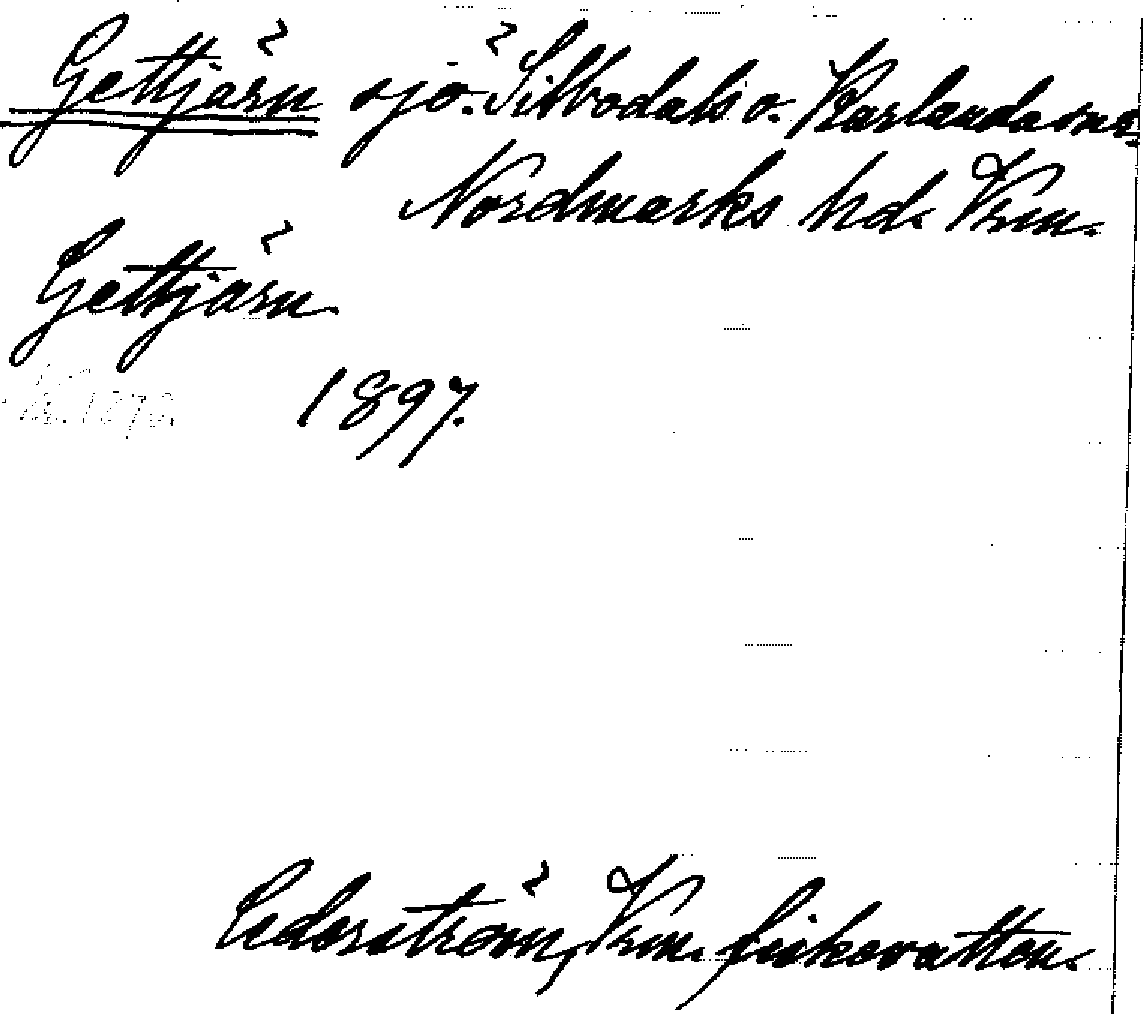 Gettjärn sjö. Silbodals o. Karlanda snr
Nordmarks hd. Vrm.
Gettjärn
1897.
Cederström, Vrm. fiskevatten.